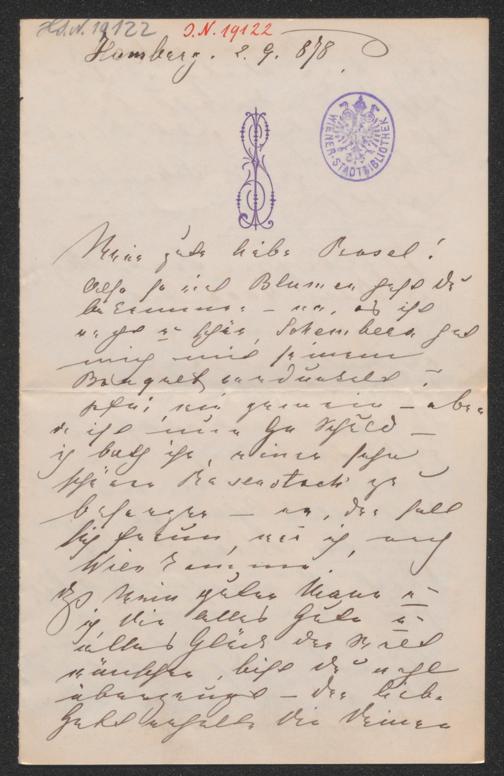 Hd.N. 19122 J.N. 19122
Hamburg. 2. 9. 878.
WIENER-STADTBIBLIOTHEK
Meine gute liebe Rosel!
Also so viel Blumen hast Du
bekommen – na, es ist
recht u schön, Schemberg hat
mich mit seinem
Bouquet verdunkelt –
pfui, wie gemein – aber
er ist nun Schuld –
ich bath ihn, einen sehr
schönen Rosenstock zu
besorgen – na, der soll
sich freuen, wie ich nach
Wien komme.
Daß Dein guter Mann u
ich Dir alles Gute u
alles Glück der Welt
wünschen, bist Du wohl
überzeugt – der liebe
Gott erhalte Dir Deinen